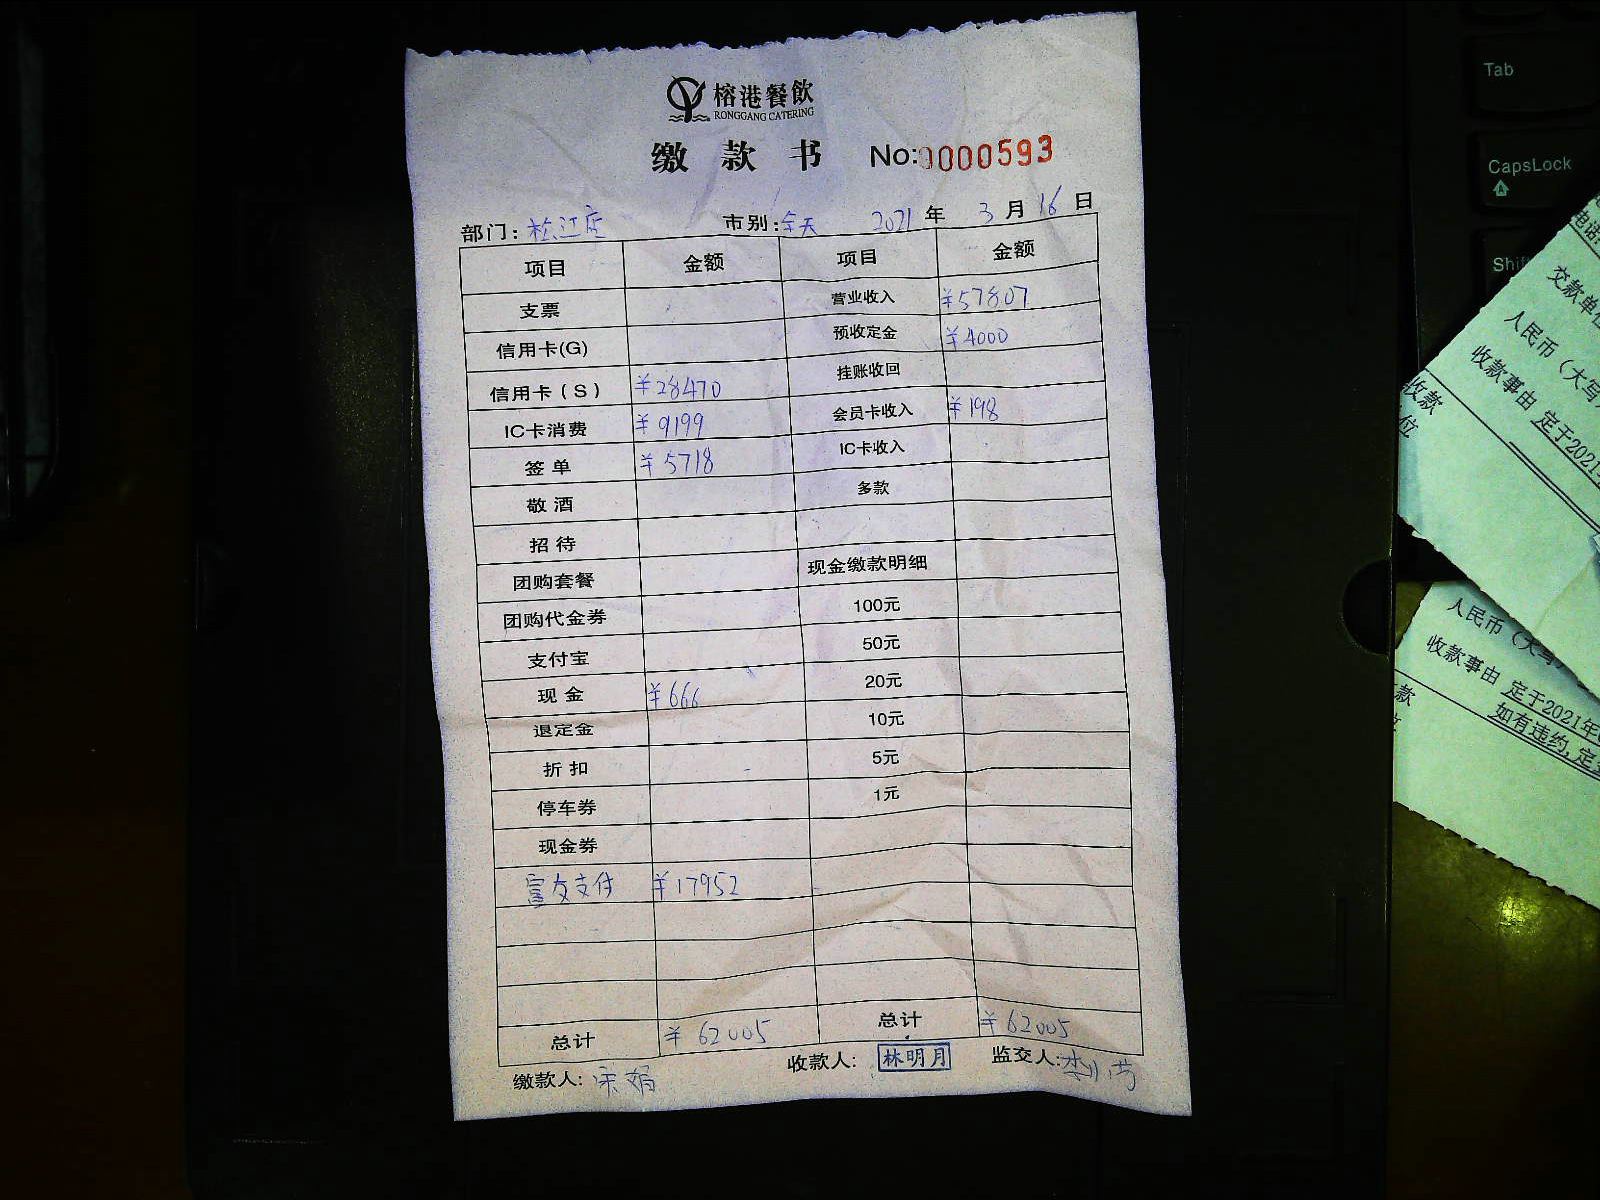 榕港餐飲
RONGGANG CATERING
缴款书 No:0000593
部门: 松江店 市别: 全天 2021年3月16日
项目 金额 项目 金额
支票 营业收入 ¥57807
信用卡(G) 预收定金 ¥4000
信用卡(S) ¥28470 挂账收回
IC卡消费 ¥9199 会员卡收入 ¥198
签单 ¥5718 IC卡收入
敬酒 多款
招待
团购套餐 现金缴款明细
团购代金券 100元
支付宝 50元
现金 ¥666 20元
退定金 10元
折扣 5元
停车券 1元
现金券
富友支付 ¥17952
总计 ¥62005 总计 ¥62005
缴款人: 宋娟 收款人: 林明月 监交人:
Tab
CapsLock
Shif
电话:
交款单位
人民币(大写
收款事由 定于2021
收款
位
人民币(大写
收款事由 定于2021年
如有违约,定
款